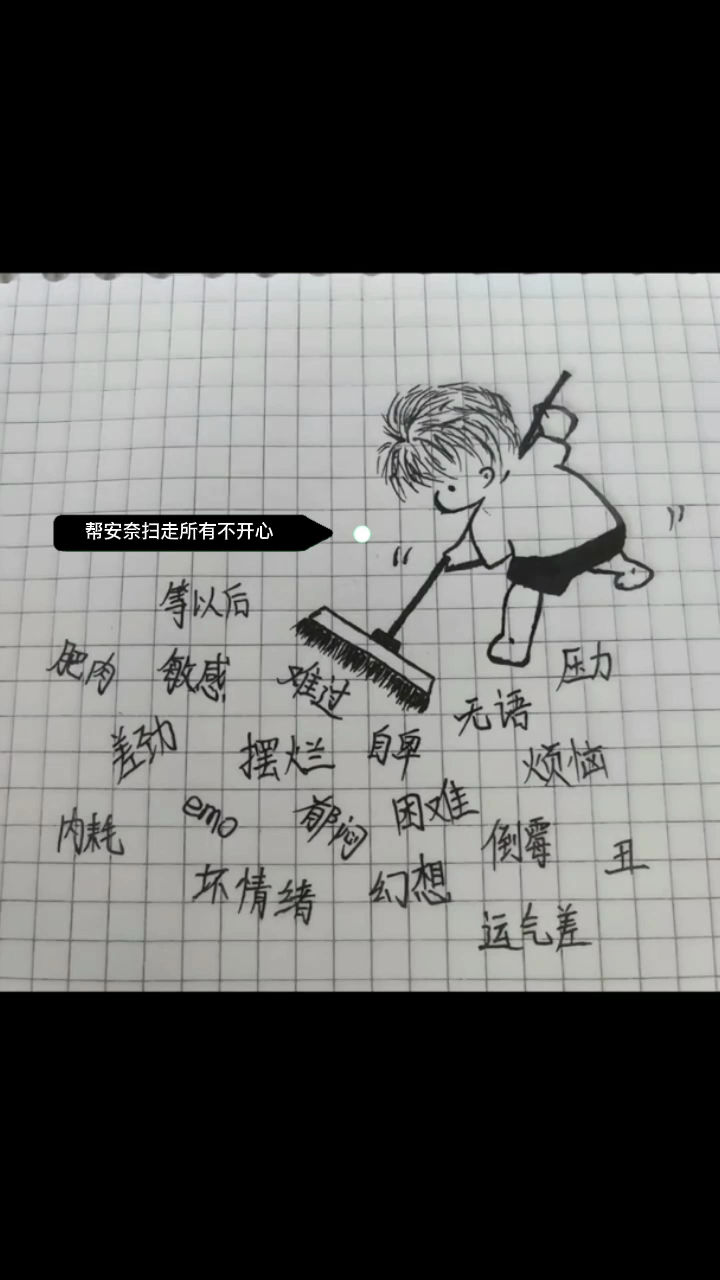 帮安奈扫走所有不开心
等以后
肥肉 敏感 难过 压力
差劲 摆烂 自卑 无语 烦恼
内耗 emo 郁闷 困难 倒霉 丑
坏情绪 幻想
运气差